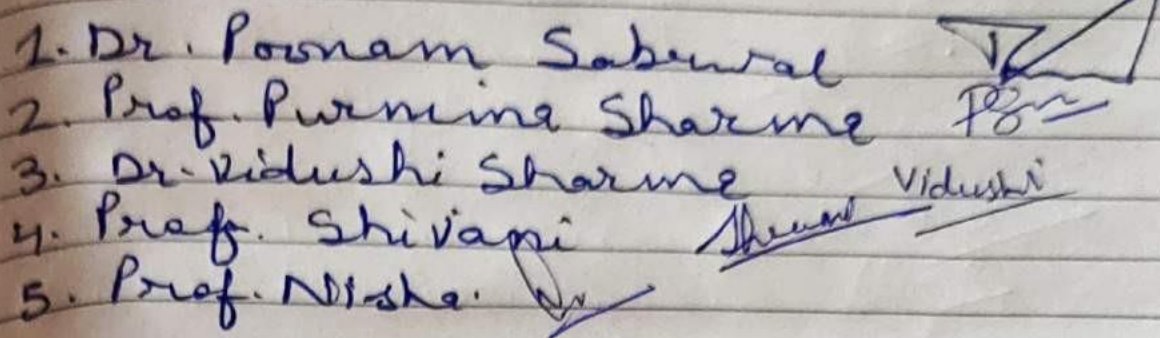 1. Dr. Poonam Saberwal
2. Prof. Purnima Sharma
3. Dr. Vidushi Sharma Vidushi
4. Proff. Shivani
5. Prof. Nisha.